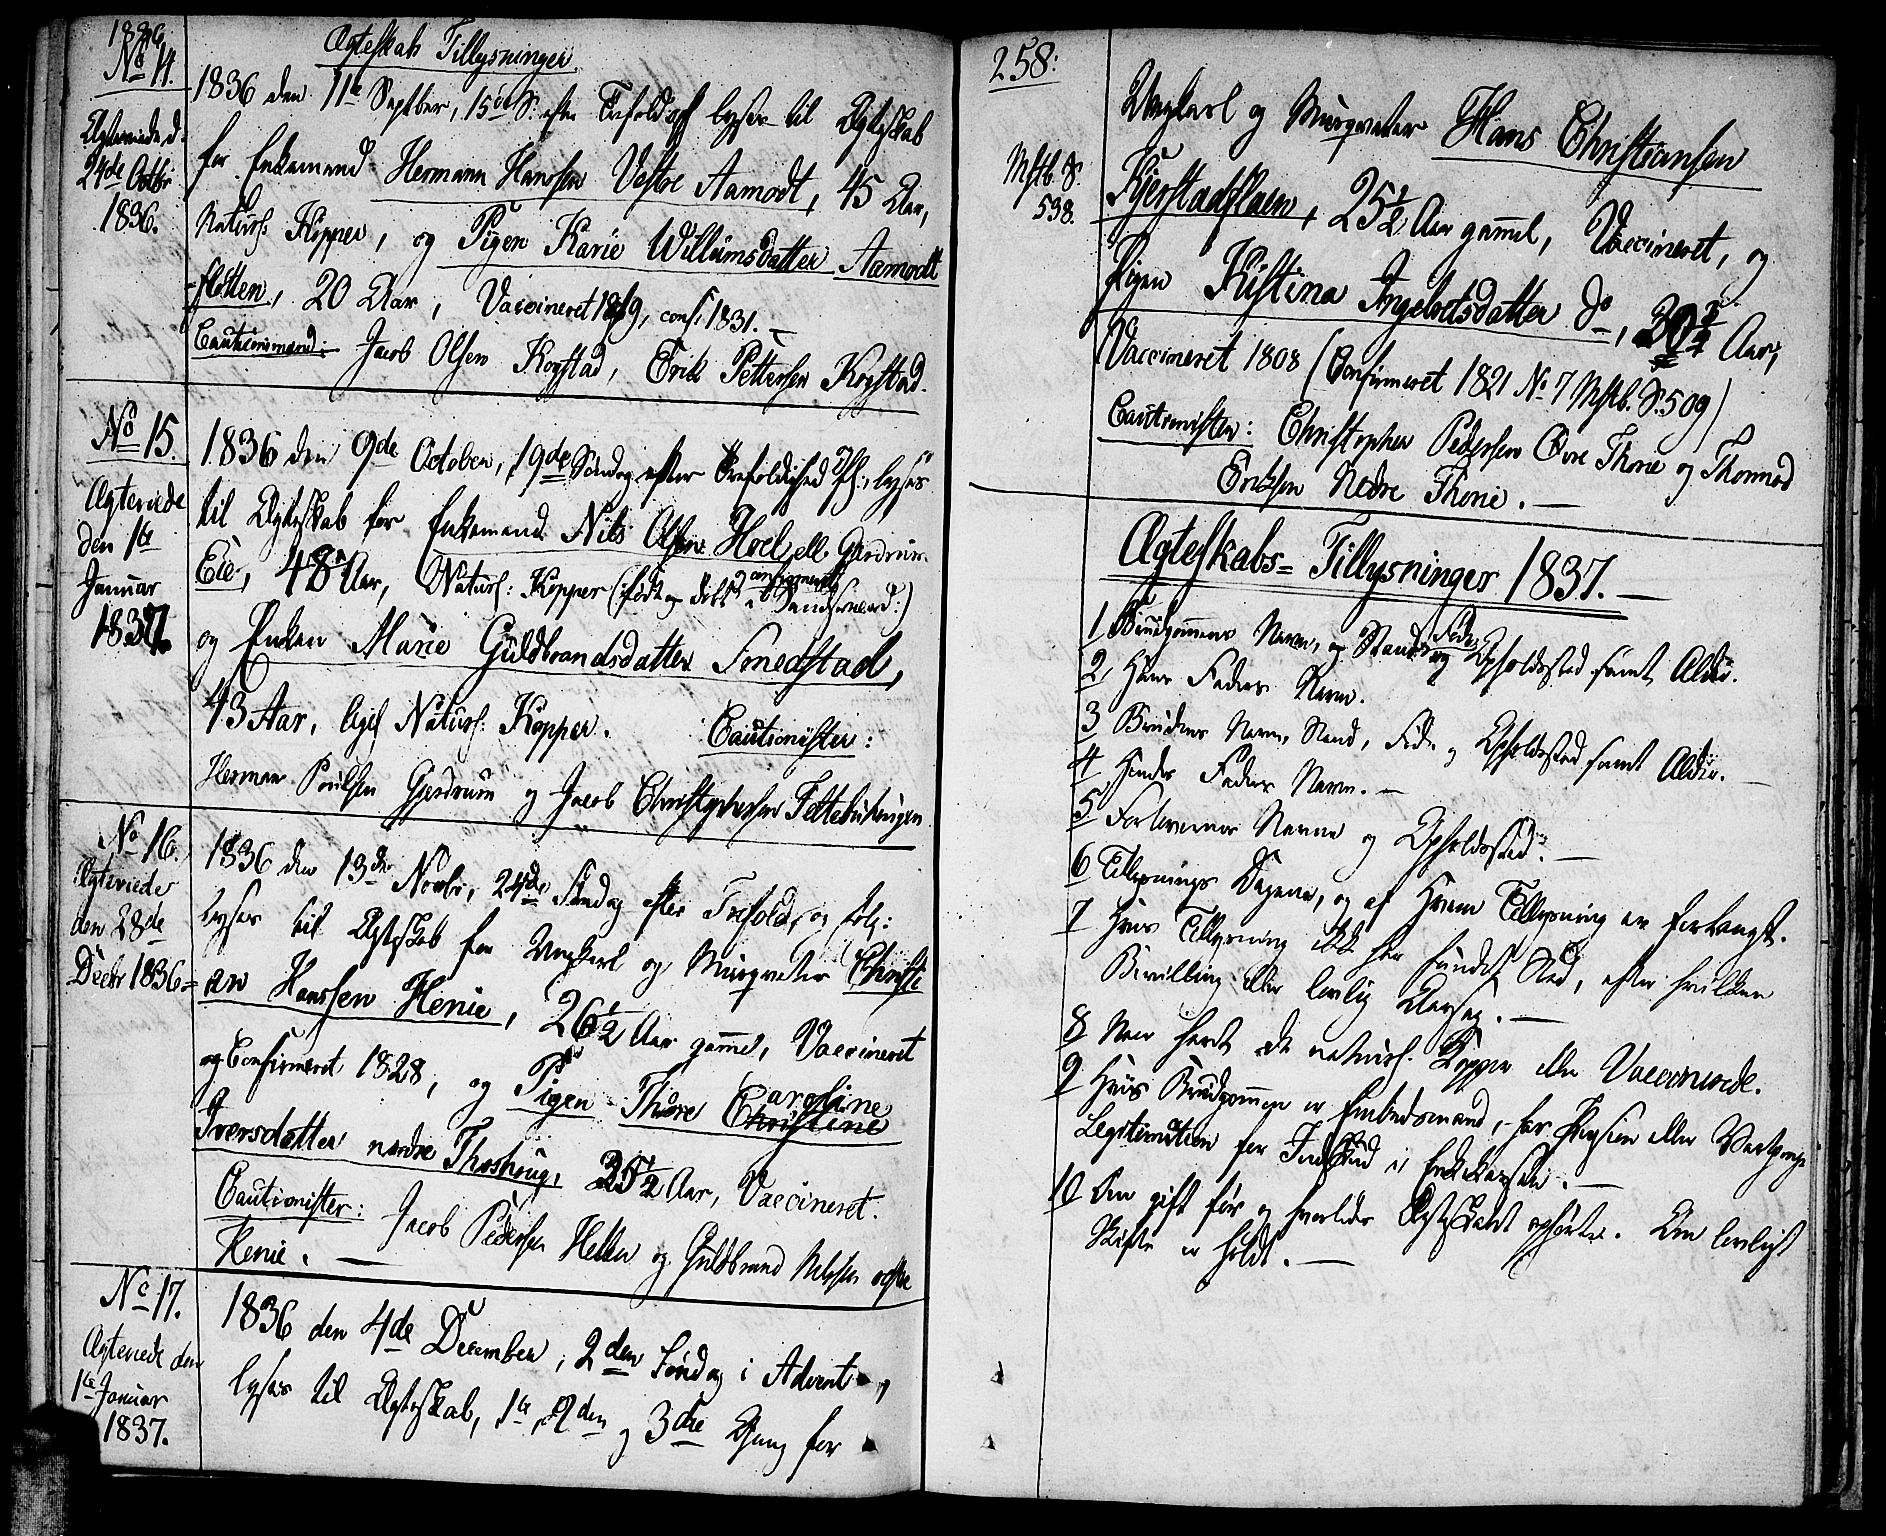 1836
Ægteskabs Tillysninger
No 14.
Ægteviede d.
24de Octbr
1836.
1836 den 11te Septber, 15de S. efter Trefoldigh lyses til Ægteskab
for Enkemand Hermann Hansen Vestre Aamodt, 45 Aar,
Naturl. Kopper, og Pigen Karie Willumsdatter Aamodt
fletten, 20 Aar, Vaccineret 1819, conf. 1831. —
Cautionsmænd: Jacob Olsen Kogstad, Erik Pettersen Kogstad.
No 15.
Ægteviede
den 1te
Januar
1837.
1836 den 9de October, 19de Søndag efter Trefoldighed lyses
til Ægteskab for Enkemand Nils Olsen Hoel ell Gjerdrum
Eie, 48 Aar, Naturl: Kopper (:født og døbt i
og Enken Marie Guldbrandsdatter Smedstad,
43 Aar, Naturl. Kopper. Cautionister:
Herman Poulsen Gjerdrum og Jacob Christophersen
No 16.
Ægteviede
den 28de
Decbr 1836
1836 den 13de Novbr, 24de Søndag efter Trefold. og følg:
lyses til Ægteskab for Ungkarl og Christi
an Hanssen Henie, 26½ Aar gammel, Vaccineret
og Confirmeret 1828, og Pigen Thore Caroline
Iversdatter nordre Thoshoug, 25½ Aar, Vaccineret.
Cautionister: Jacob Pedersen Hellen og Guldbrand Nilsen
Henie. —
No 17.
Ægteviede den
1te Januar
1837.
1836 den 4de December, 2den Søndag i Advent,
lyses til Ægteskab, 1te, 2den og 3die Gang for
258:
Mstb. S.
538.
Ungkarl og Hans Christiansen
Kjerstadflaen, 25½ Aar gammel, Vaccineret, og
Pigen Kistina Ingebretsdatter do, 30¾ Aar,
Vaccineret 1808 (Confirmeret 1821 No 7 Mstb. S. 509)
Cautionister: Christopher Pedersen Øvre Thorie og Thormod
Eriksen Nedre Thorie. —
Ægteskabs-Tillysninger 1837. —
1 Brudgommens Navn, og Stand, Føde og Opholdssted samt Alder.
2, Hans Faders Navn.
3 Brudens Navn, Stand, Føde og Opholdssted samt Alder.
4 Hendes Faders Navn. —
5 Forlovernes Navne og Opholdssted. —
6 Tillysnings Dagene, og af Hvem Tillysning er forlangt.
7 Hvis Tillysning ikke har fundet Sted, efter hvilken
Bevilling eller lovlig Aarsag. —
8 Om havt de naturl. Kopper eller Vaccinerede.
9 Hvis Brudgommen er Embedsmand, har Pension eller
Legitimation for Indskud i Enkekassen. —
10 Om gift før og hvorledes Ægteskabet ophørte. Om lovligt
Skifte er holdt. —